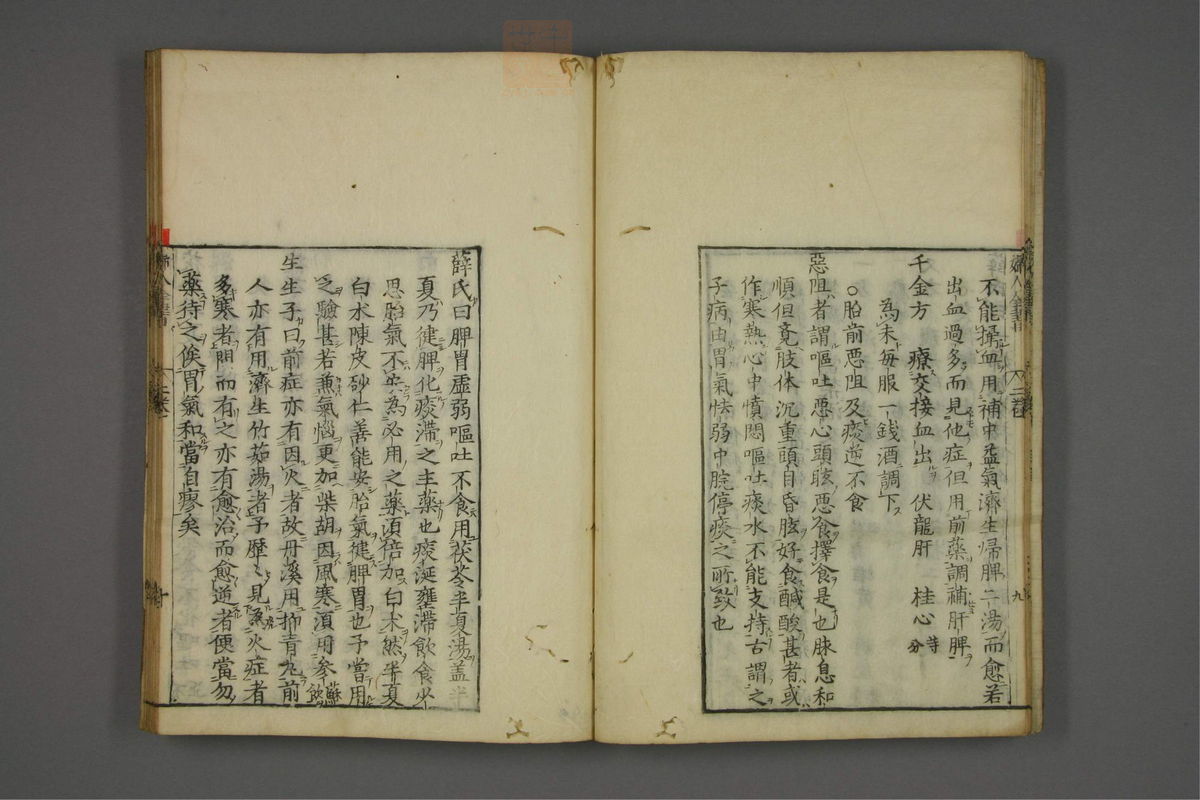 不能攝血用補中益氣濟生帰脾二湯而愈若
出血過多而見他症但用前薬調補肝脾
千金方　療交接血出　伏龍肝　桂心等分
為末毎服一銭酒調下
○胎前悪阻及痰逆不食
惡阻者謂嘔吐悪心頭眩悪食擇食是也脉息和
順但覚肢体沉重頭目昏眩好食鹹酸甚者或
作寒熱心中憤悶嘔吐痰水不能支持古謂之
子病由胃氣怯弱中脘停痰之所致也
薛氏曰脾胃虚弱嘔吐不食用茯苓半夏湯盖半
夏乃健脾化痰滞之主薬也痰涎壅滞飲食少
思胎氣不安為必用之薬須倍加白术然半夏
白术陳皮砂仁善能安胎氣健脾胃也予嘗用
之驗甚若兼氣惱更加柴胡因風寒須用参蘇飲
生生子曰前症亦有因火者故丹溪用抑青丸前
人亦有用濟生竹茹湯者予歴〻見為火症者
多寒者間而有之亦有愈治而愈逆者便當勿
薬待之俟胃氣和當自瘳矣
婦人全書
九
十